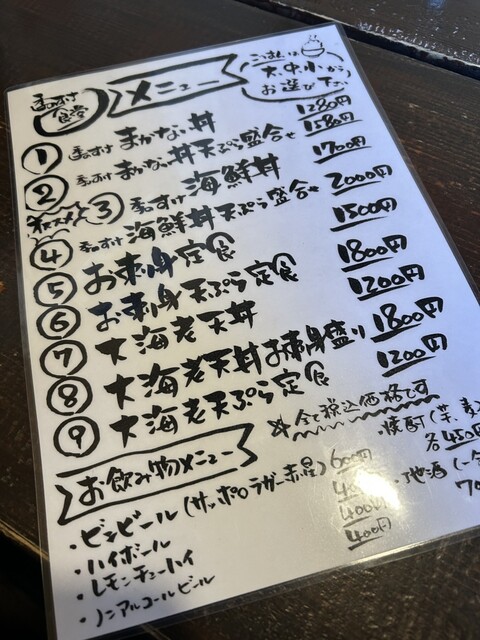 食堂
メニュー
ごはんは
大・中・小から
お選び下さい
① まかない丼 1280円
② まかない丼天ぷら盛合せ 1580円
オススメ ③ 海鮮丼 1700円
④ 海鮮丼天ぷら盛合せ 2000円
⑤ お刺身定食 1500円
⑥ お刺身天ぷら定食 1800円
⑦ 大海老天丼 1200円
⑧ 大海老天丼お刺身盛り 1800円
⑨ 大海老天ぷら定食 1200円
※全て税込価格です
お飲み物メニュー
・ビンビール(サッポロラガー赤星) 600円
・ハイボール
・レモンチューハイ 400円
・ノンアルコールビール 400円
・焼酎(芋、麦)
各450円
・地酒